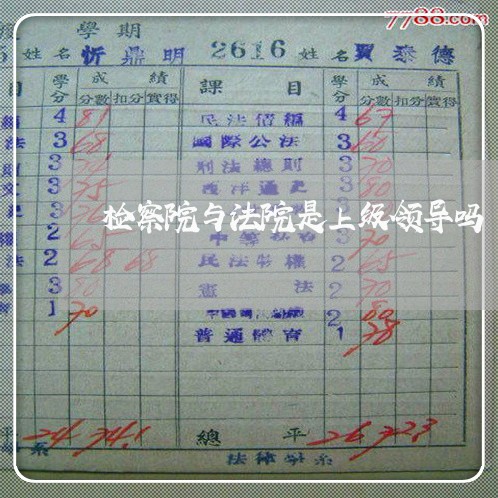 7788.com
學期
姓名 忻鼎明 2616 姓名 賈泰德
目 學分 成績 課目 學分 成績
分數 扣分 實得 分數 扣分 實得
4 81 民法債編 4 67
法 3 68 國際公法 3 60
3 刑法總則 3 70
3 75 西洋通史 3 80
檢察院与法院是上級領导吗
3 3
2 65 3 70
法 2 68 68 民法物權 2 65
3 80 憲法 2 70
1 70 2 80
普通體育 1 78
平 24 74.1 總平 26 72.3
系 法律學系